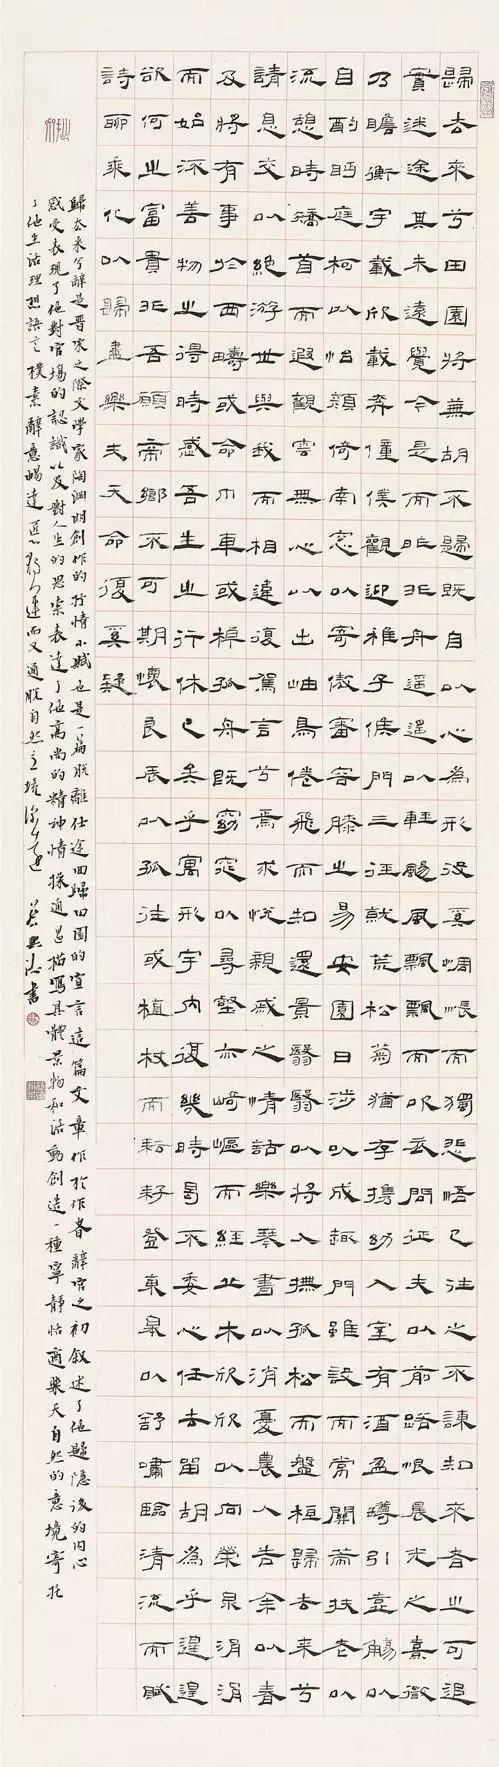 歸去來兮田園將蕪胡不歸既自以心為形役奚惆悵而獨悲悟已往之不諫知來者之可追
實迷途其未遠覺今是而昨非舟遙遙以輕颺風飄飄而吹衣問征夫以前路恨晨光之熹微
乃瞻衡宇載欣載奔僮僕觀迎稚子候門三徑就荒松菊猶存攜幼入室有酒盈罇引壺觴以
自酌眄庭柯以怡顏倚南窗以寄傲審容膝之易安園日涉以成趣門雖設而常關策扶老以
流憩時矯首而遐觀雲無心以出岫鳥倦飛而知還景翳翳以將入撫孤松而盤桓歸去來兮
請息交以絕游世與我而相違復駕言兮焉求悅親戚之情話樂琴書以消憂農人告余以春
及將有事於西疇或命巾車或棹孤舟既窈窕以尋壑亦崎嶇而經丘木欣欣以向榮泉涓涓
而始流善物之得時感吾生之行休已矣乎寓形宇內復幾時曷不委心任去留胡為乎遑遑
欲何之富貴非吾願帝鄉不可期懷良辰以孤往或植杖而耘耔登東皋以舒嘯臨清流而賦
詩聊乘化以歸盡樂夫天命復奚疑
歸去來兮辭是晉宋之際文學家陶淵明創作的抒情小賦也是一篇脫離仕途回歸田園的宣言這篇文章作於作者辭官之初敘述了他歸隱後的內心
感受表現了他對官場的認識以及對人生的思索表達了他高尚的精神情操通過描寫具體景物和活動創造一種寧靜恬適樂天自然的意境寄托
了他生活理想語言樸素辭意暢達匠心獨運而又通脫自然意境深遠 書